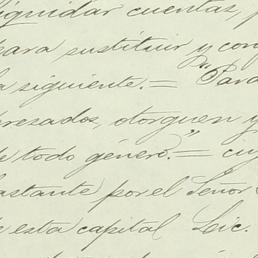 liquidar cuentas, p
para sustituir y con
la siguiente. = "Para
eresados, otorguen y
de todo género." = cuy
bastante por el Señor
de esta capital Lic.